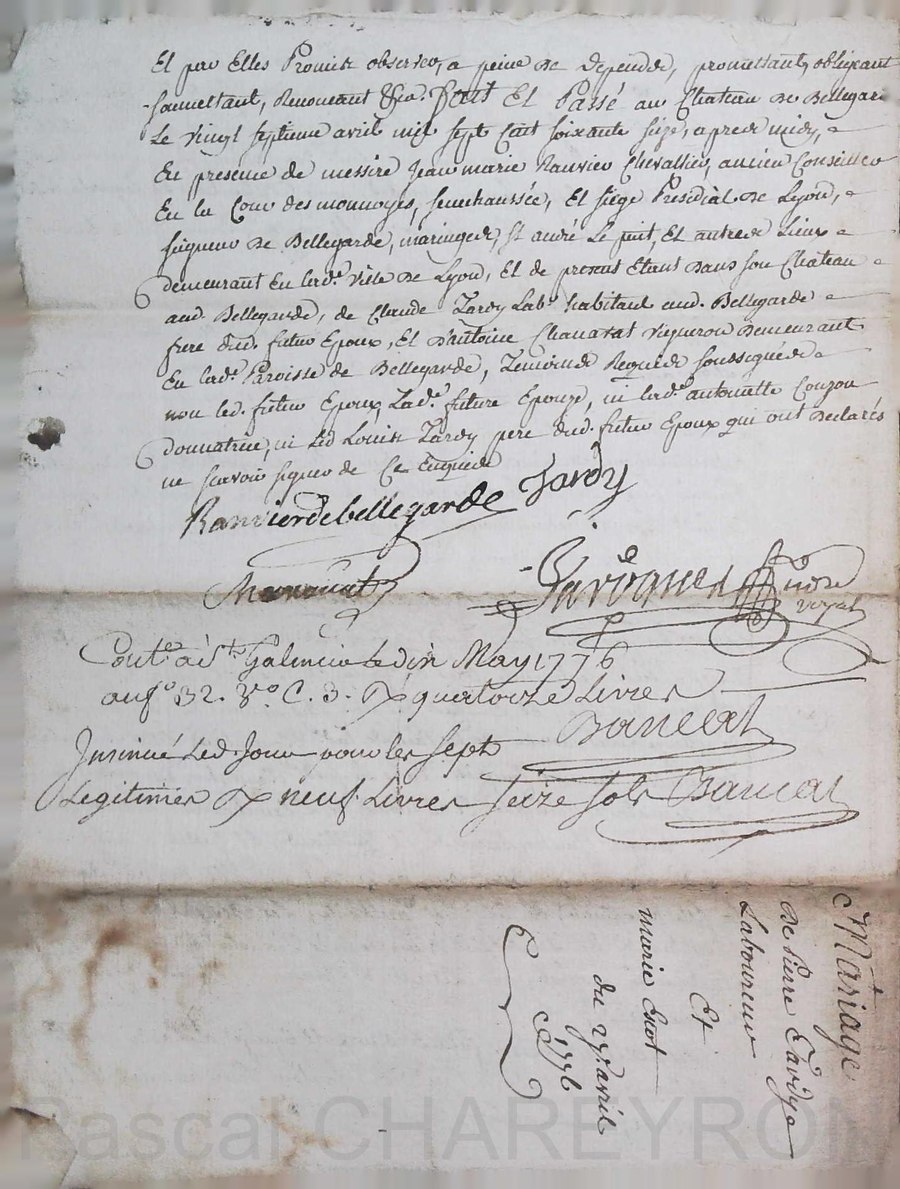 Et par Elles Promis observer, a peine de dépends, promettant, obligeant
Soumettant, Renonceant &ca. Fait Et Passé au Chateau De Bellegarde
Le vingt septieme avril mil sept Cent soixante seize, apres midy,
En presence de messire Jean marie Ranvier Chevallier, ancien Conseiller
En la Cour des monnoyes, senechaussée, Et siége Présidial De Lyon,
seigneur De Bellegarde, maringes, St andré Le puit, Et autres Lieux
demeurant En lad.e ville De Lyon, Et de present Etant Dans son Chateau
aud Bellegarde, de Claude Tardy Lab.r habitant aud. Bellegarde
frere dud. futur Epoux, Et D'antoine Chanavat vigneron Demeurant
En lad.e Paroisse de Bellegarde, Temoins Requis soussignés
non led. futur Epoux, Lad.e future Epouze, ni lad.e antoinette Couzon
donnatrice, ni Led Louis Tardy pere dud. futur Epoux qui ont Declarés
ne scavoir signer de Ce Enquis
Ranvier de bellegarde Tardy
Chanavat
Javogues nore royal
Cont.é a St Galmier le dix May 1776
au f.o 32. v.o C. 3. quatorze Livres
Bancal
Insinué Led. Jour pour les sept
Legitimes neuf Livres seize sols Bancal
Mariage
De Pierre Tardy
Laboureur
Et
marie Escot
du 27e avril
1776
Pascal CHAREYRON